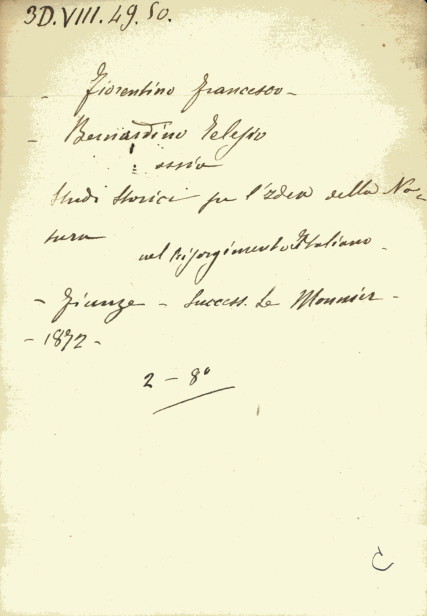 3D.VIII.49.50.
- Fiorentino Francesco -
- Bernardino Telesio
ossia
Studi storici su l'Idea della Na-
tura
nel Risorgimento Italiano -
- Firenze - Success. Le Monnier -
- 1872 -
2 - 8°
C